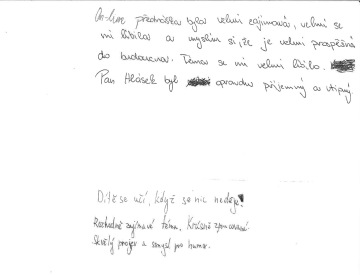 On-line přednáška byla velmi zajímavá, velmi se
mi líbila a myslím si, že je velmi prospěšná
do budoucna. Téma se mi velmi líbilo.
Pan Hlásek byl opravdu příjemný a vtipný
Dítě se učí, když se nic neděje.
Rozhodně zajímavé téma, Krásně zpracované.
Skvělý projev a smysl pro humor.